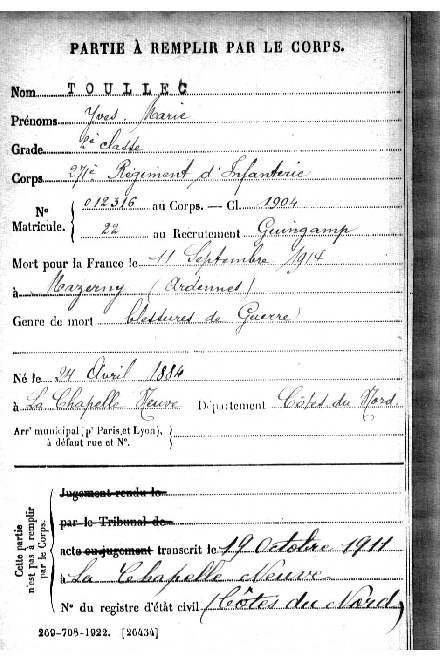 PARTIE À REMPLIR PAR LE CORPS.
Nom TOULLEC
Prénoms Yves Marie
Grade 2è classe
Corps 271è Régiment d'Infanterie
N° Matricule. { 012316 au Corps. — Cl. 1904
22 au Recrutement Guingamp
Mort pour la France le 11 Septembre 1914
à Mazerny (Ardennes)
Genre de mort blessures de Guerre
Né le 24 Avril 1884
à La Chapelle Neuve Département Côtes du Nord.
Arr^t municipal (p^r Paris et Lyon), à défaut rue et N°. {
Cette partie n'est pas à remplir par le Corps.
Jugement rendu le
par le Tribunal de
acte ou jugement transcrit le 19 Octobre 1911
à La Chapelle Neuve
N° du registre d'état civil (Côtes du Nord)
269-708-1922. [26434]